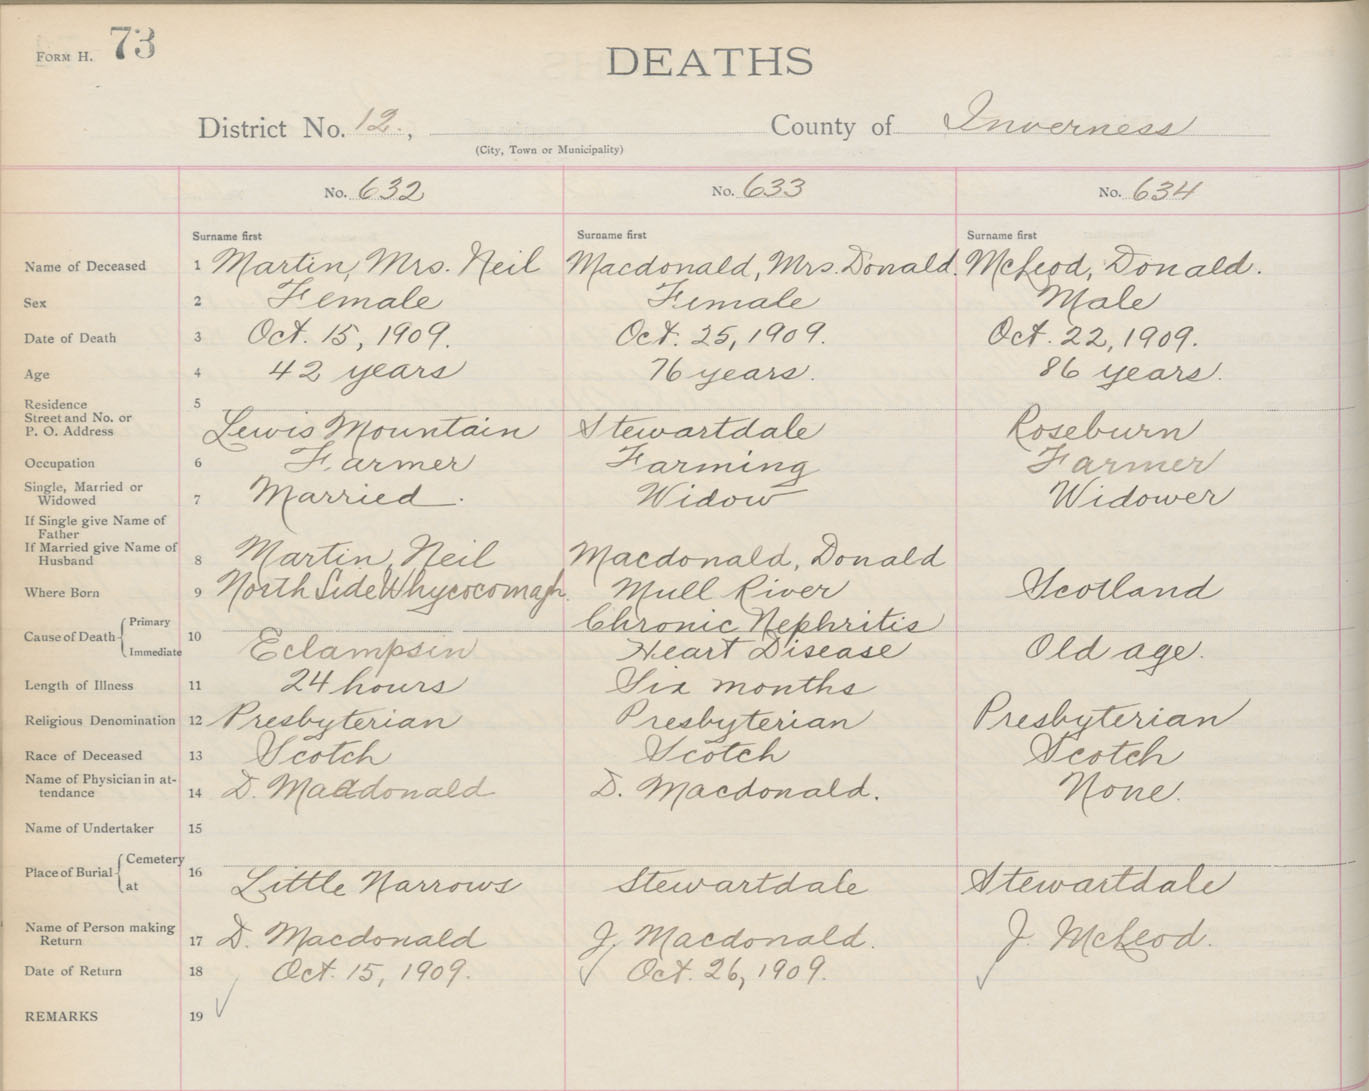 FORM H. 73
DEATHS
District No. 12., County of Inverness
(City, Town or Municipality)
No. 632 No. 633 No. 634
Surname first Surname first Surname first
Name of Deceased 1 Martin, Mrs. Neil Macdonald, Mrs. Donald. McLeod, Donald.
Sex 2 Female Female Male
Date of Death 3 Oct. 15, 1909. Oct. 25, 1909. Oct. 22, 1909.
Age 4 42 years 76 years. 86 years.
Residence 5
Street and No. or
P. O. Address Lewis Mountain Stewartdale Roseburn
Occupation 6 Farmer Farming Farmer
Single, Married or
Widowed 7 Married. Widow Widower
If Single give Name of
Father
If Married give Name of
Husband 8 Martin, Neil Macdonald, Donald
Where Born 9 North Side Whycocomagh. Mull River Scotland
Cause of Death Primary 10 Chronic Nephritis
Immediate Eclampsin Heart Disease Old age.
Length of Illness 11 24 hours Six months
Religious Denomination 12 Presbyterian Presbyterian Presbyterian
Race of Deceased 13 Scotch Scotch Scotch
Name of Physician in at-
tendance 14 D. Macdonald D. Macdonald. None.
Name of Undertaker 15
Place of Burial Cemetery 16
at Little Narrows Stewartdale Stewartdale
Name of Person making
Return 17 D. Macdonald J. Macdonald. J. McLeod.
Date of Return 18 Oct. 15, 1909. Oct. 26, 1909.
REMARKS 19